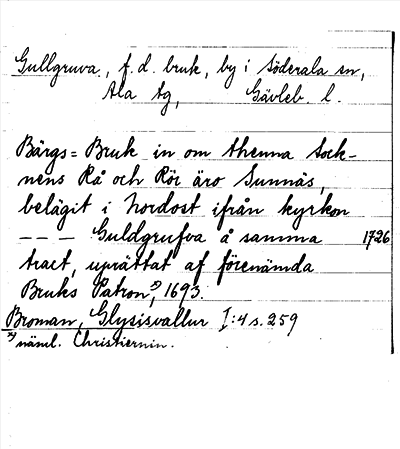 Gullgruva, f. d. bruk, by i Söderala sn,
Ala tg, Gävleb. l.
Bärgs=Bruk in om thenna Sock-
nens Rå och Rör äro Sunnäs,
belägit i Nordost ifrån kyrkon
--- Guldgrufva å samma 1726
tract, uprättat af förenämda
Bruks Patron, x) 1693.
Broman, Glysisvallur I:4 s. 259
x) näml. Christiernin.